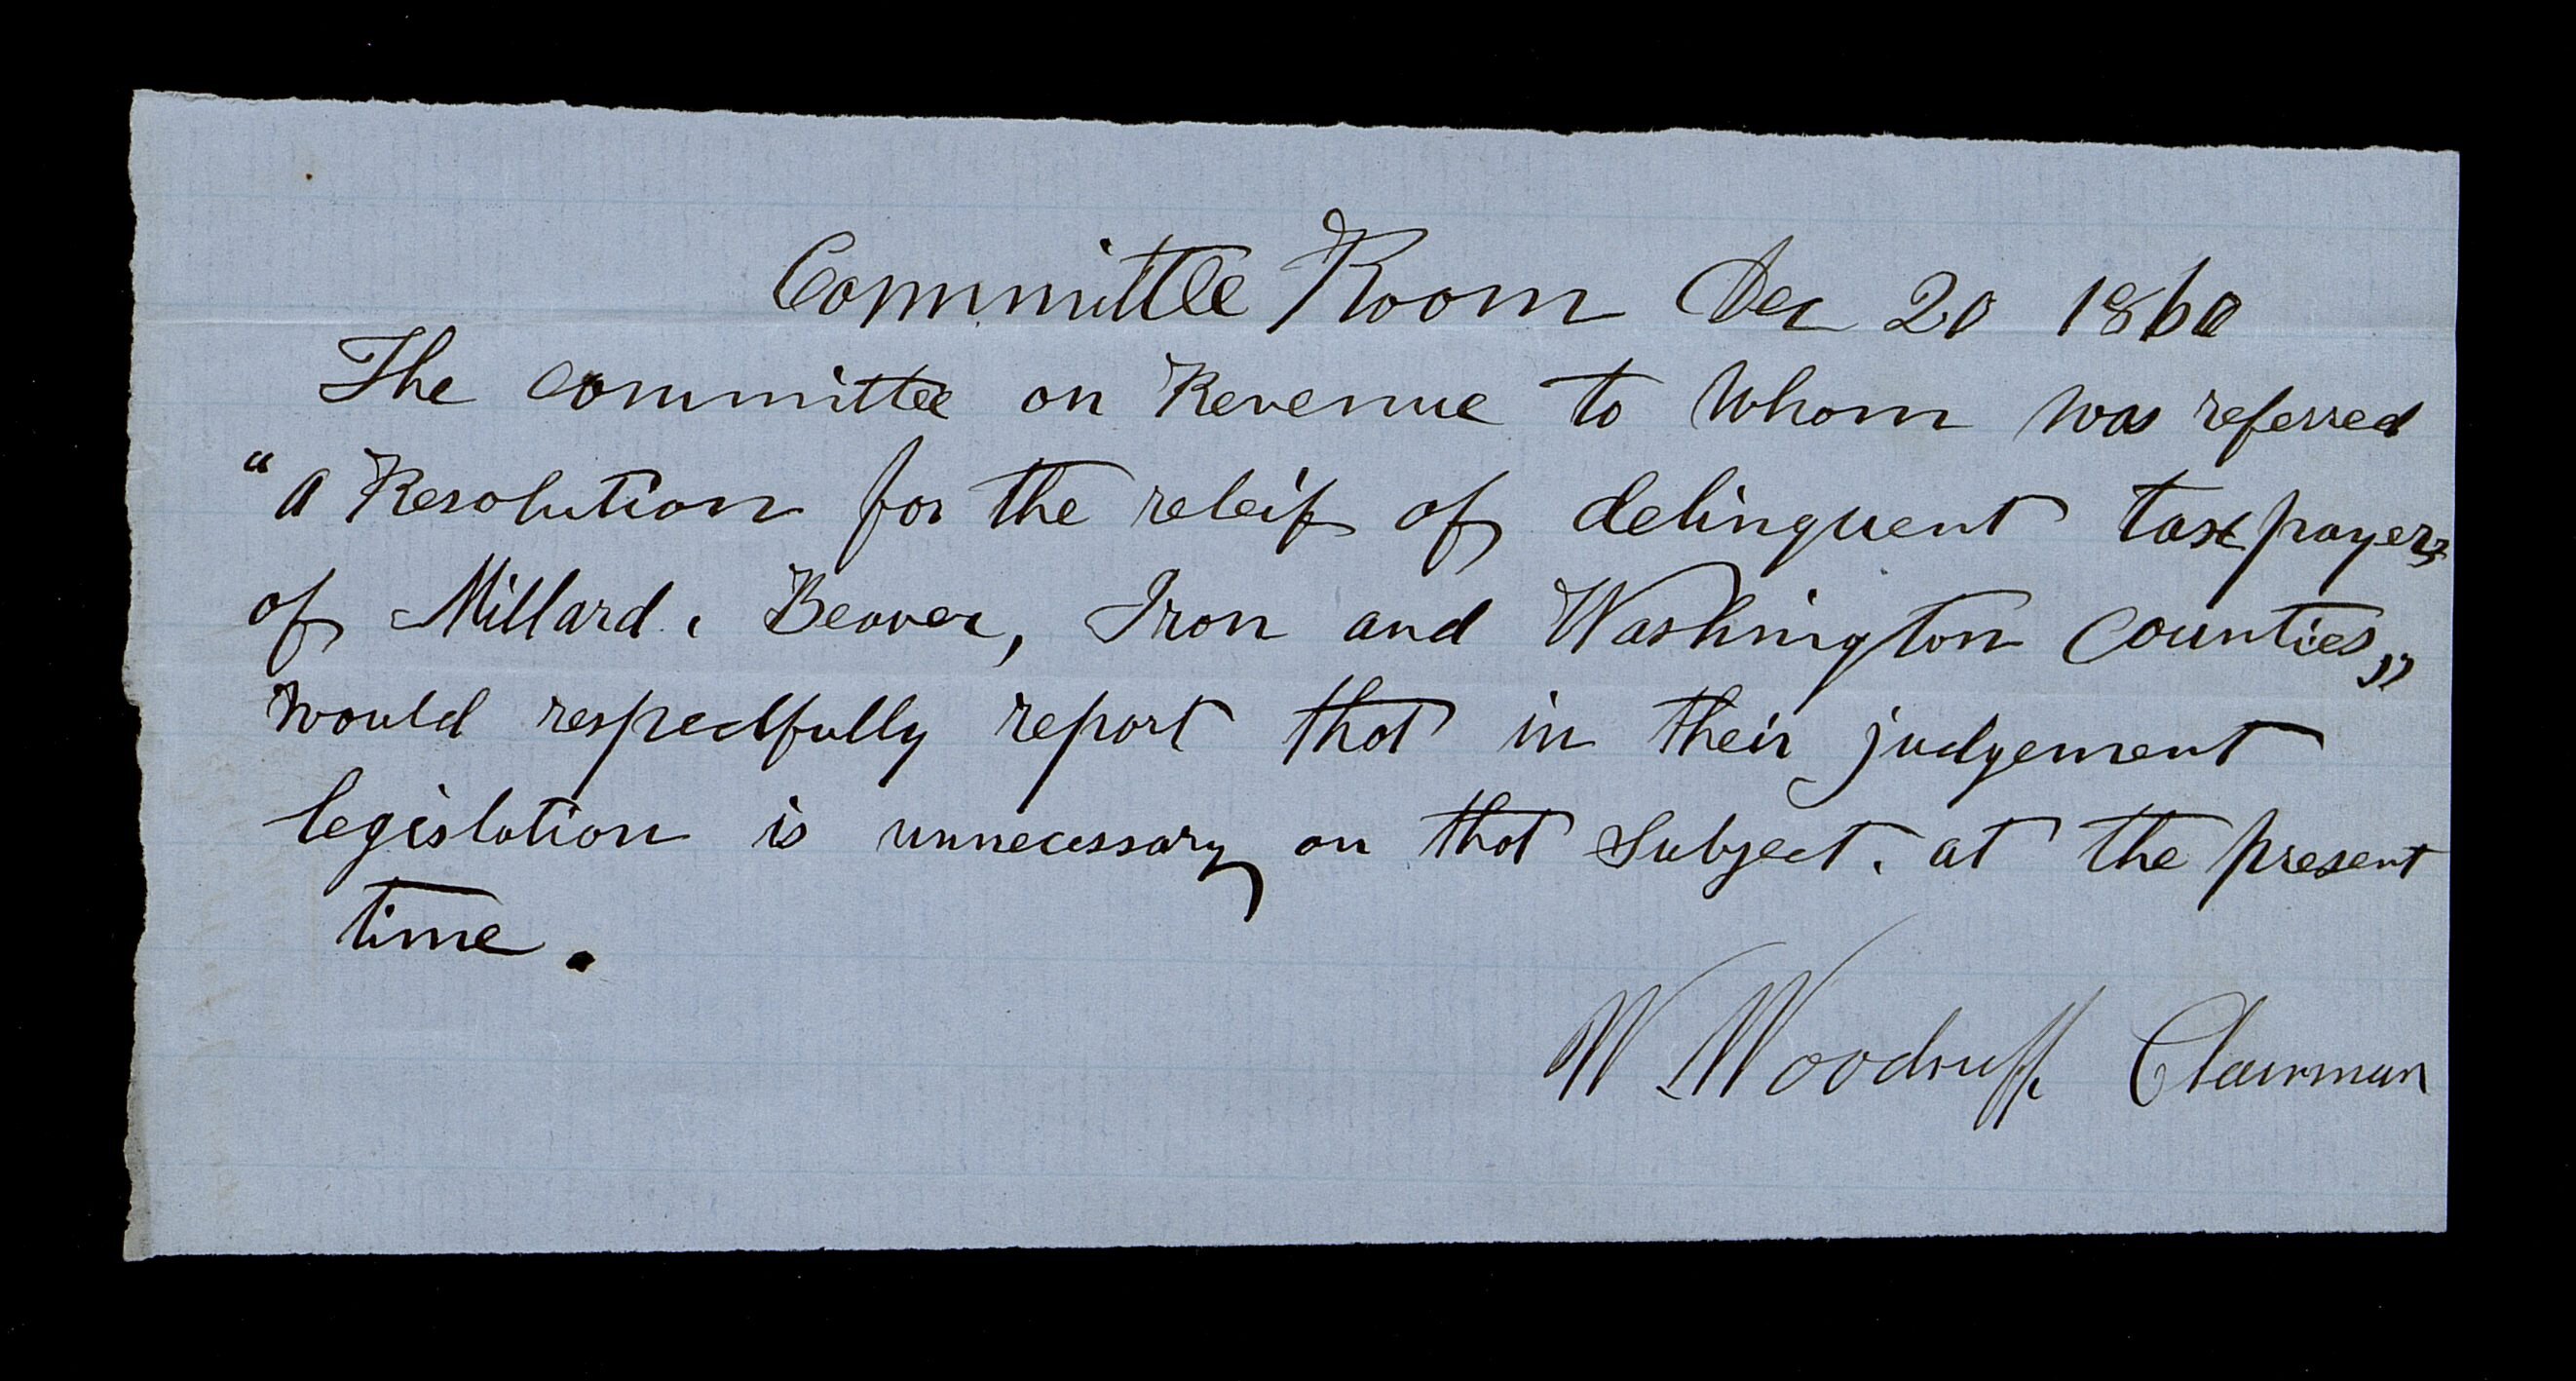 Committee Room Dec 20 1860
The committee on Revenue to Whom was referred
"A Resolution for the releif of delinquent tax payers
of Millard, Beaver, Iron and Washington Counties"
would respectfully report that in their judgement
legislation is unnecessary on that subject, at the present
time.
W Woodruff Chairman